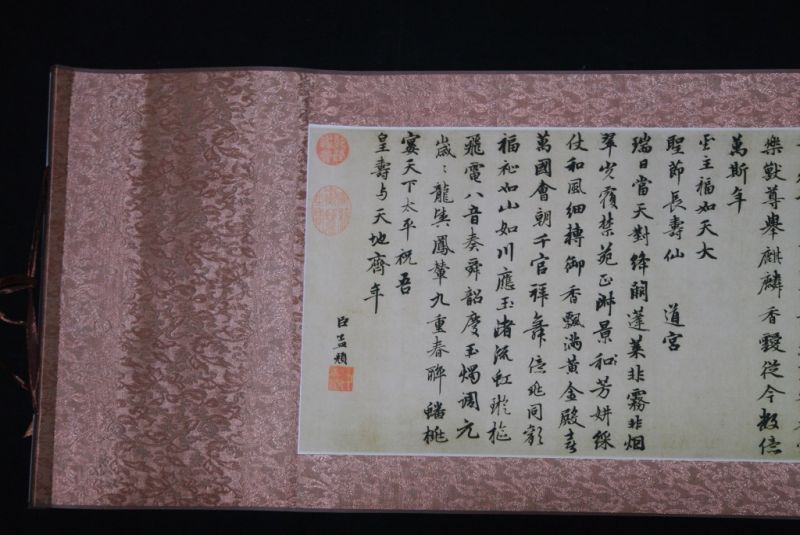 尊舉麒麟香靉從今數億
萬斯年
主福如天大
聖節長壽仙 道宮
瑞日當天對絳闕蓬萊非霧非烟
翠光覆禁苑正淑景和芳妍綵
仗和風細轉御香飄滿黃金殿喜
萬國會朝千官拜舞億兆同歡
福祉如山如川應玉渚流虹璇樞
飛電八音奏舜韶慶玉燭調元
歲〻龍輿鳳輦九重春醉蟠桃
宴天下太平祝吾
皇壽与天地齊年
臣孟頫